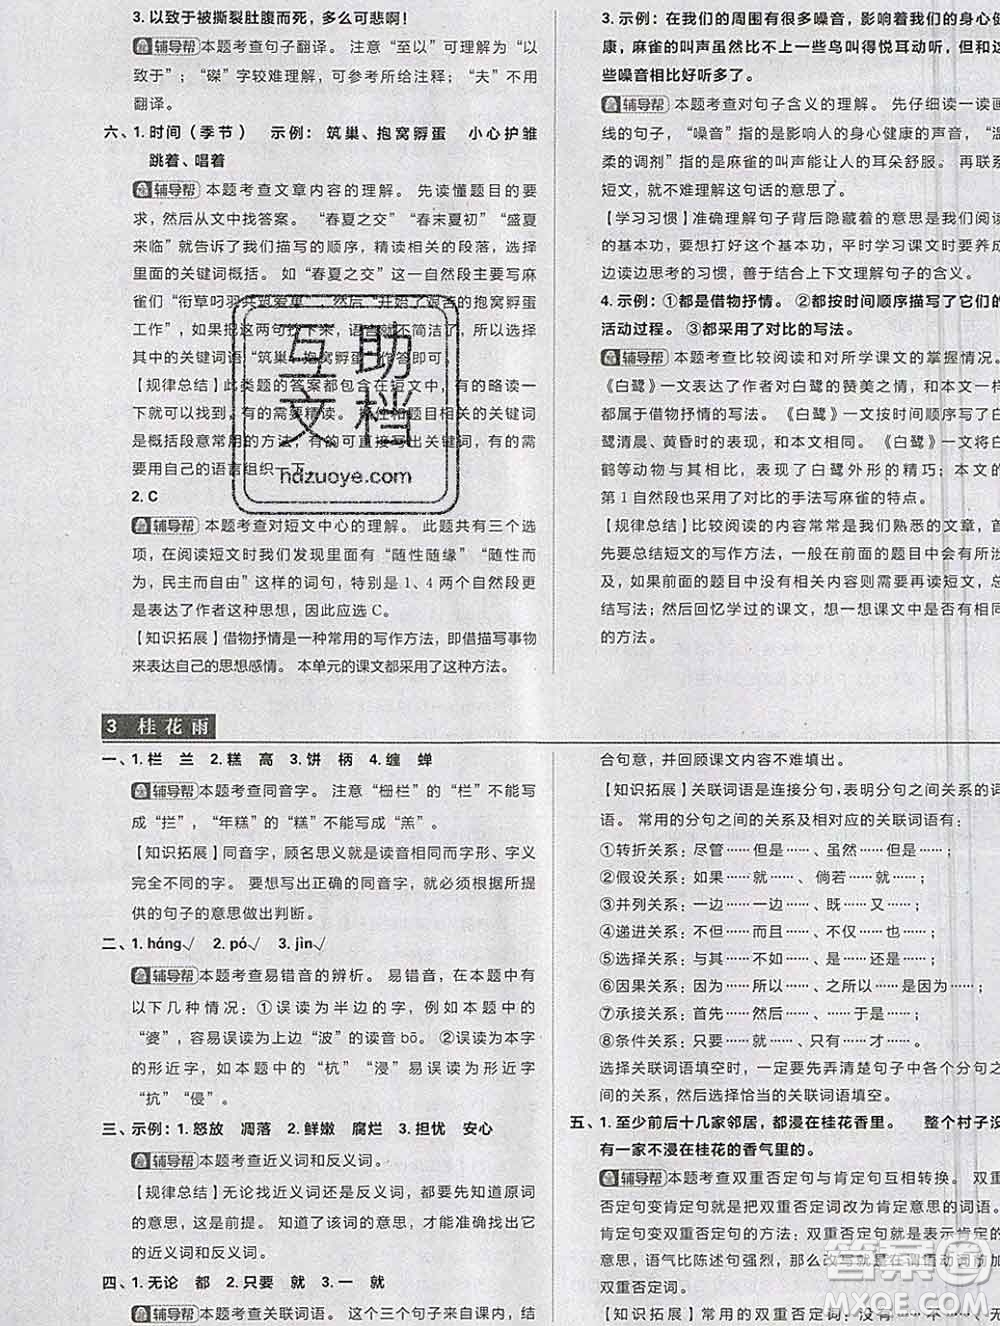 3. 以致于被撕裂肚腹而死，多么可悲啊！
辅导帮 本题考查句子翻译。 注意“至以”可理解为“以
致于”；“磔”字较难理解，可参考所给注释；“夫”不用
翻译。
六、1. 时间（季节） 示例：筑巢、抱窝孵蛋 小心护雏
跳着、唱着
辅导帮 本题考查文章内容的理解。 先读懂题目的要
求，然后从文中找答案。“春夏之交”“春末夏初”“盛夏
来临”就告诉了我们描写的顺序，精读相关的段落，选择
里面的关键词概括。 如“春夏之交”这一自然段主要写麻
雀们“衔草叼羽共筑爱巢”，然后“开始了艰苦的抱窝孵蛋
工作”，如果把这两句抄下来，语言就不够简洁了，所以选择
其中的关键词语“筑巢、抱窝孵蛋”作答即可。
【规律总结】此类题的答案都包含在短文中，有的略读一
下就可以找到，有的需要精读。 抓住和题目相关的关键词
是概括段意常用的方法，有的可直接写出关键词，有的需
要用自己的语言组织一下。
2. C
辅导帮 本题考查对短文中心的理解。 此题共有三个选
项，在阅读短文时我们发现里面有“随性随缘”“随性而
为，民主而自由”这样的词句，特别是 1、4 两个自然段更
是表达了作者这种思想，因此应选 C。
【知识拓展】借物抒情是一种常用的写作方法，即借描写事物
来表达自己的思想感情。 本单元的课文都采用了这种方法。
3. 示例：在我们的周围有很多噪音，影响着我们的身心健
康，麻雀的叫声虽然比不上一些鸟叫得悦耳动听，但和这
些噪音比起来好听多了。
辅导帮 本题考查对句子含义的理解。 先仔细读一读画
线的句子，“噪音”指的是影响人的身心健康的声音，“温
柔的调剂”指的是麻雀的叫声能让人的耳朵舒服。 再联系
短文，就不难理解这句话的意思了。
【学习习惯】准确理解句子背后隐藏着的意思是我们阅读
的基本功，要想打好这个基本功，平时学习课文时要养成
边读边思考的习惯，善于结合上下文理解句子的含义。
4. 示例：①都是借物抒情。 ②都按时间顺序描写了它们的
活动过程。 ③都采用了对比的写法。
辅导帮 本题考查比较阅读和对所学课文的掌握情况。
《白鹭》一文表达了作者对白鹭的赞美之情，和本文一样
都属于借物抒情的写法。《白鹭》一文按时间顺序写了白
鹭清晨、黄昏时的表现，和本文相同。《白鹭》一文将白
鹤等动物与其进行对比，表现了白鹭外形的精巧；本文的
第 1 自然段也采用了对比的手法写麻雀的特点。
【规律总结】比较阅读的内容常常是我们熟悉的文章，首
先要总结短文的写作方法，一般在前面的题目中会有所涉
及，如果前面的题目中没有相关内容则需要再读短文，总
结写法；然后回忆学过的课文，想一想课文中是否有相同
的方法。
互助
文档
hdzuoye.com
3 桂花雨
一、1. 栏 兰 2. 糕 高 3. 饼 柄 4. 缠 蝉
辅导帮 本题考查同音字。 注意“栅栏”的“栏”不能写
成“拦”，“年糕”的“糕”不能写成“羔”。
【知识拓展】同音字，顾名思义就是读音相同而字形、字义
完全不同的字。 要想写出正确的同音字，就必须根据所提
供的句子的意思做出判断。
二、1. háng√ 2. pó√ 3. jìn√
辅导帮 本题考查易错音的辨析。 易错音，在本题中有
以下几种情况：①误读为半边的字，例如本题中的
“婆”，容易误读为上边“波”的读音 bō。 ②误读为本字
的形近字，如本题中的“杭”“浸”易误读为形近字
“抗”“侵”。
三、示例：1. 怒放 凋落 2. 鲜嫩 腐烂 3. 担忧 安心
辅导帮 本题考查近义词和反义词。
【规律总结】无论找近义词还是反义词，都要先知道原词
的意思，这是前提。 知道了该词的意思，才能准确找出它
的近义词和反义词。
四、1. 无论 都 2. 只要 就 3. 一 就
辅导帮 本题考查关联词语。 这个三个句子来自课内，结
合句意，并回顾课文内容不难填出。
【知识拓展】关联词语是连接分句，表明分句之间关系的词
语。 常用的分句之间的关系及相对应的关联词语有：
①转折关系：尽管……但是……、虽然……但是……
②假设关系：如果……就……、倘若……就……
③并列关系：一边……一边……、既……又……；
④递进关系：不但……而且……、不仅……也……；
⑤选择关系：与其……不如……、是……还是……；
⑥因果关系：因为……所以……、之所以……是因为……；
⑦承接关系：首先……然后……、……于是……；
⑧条件关系：只要……就……、只有……才……。
选择关联词语填空时，一定要先弄清楚句子中各个分句之
间的关系，然后选择恰当的关联词语填空。
五、1. 至少前后十几家邻居，都浸在桂花香里。 整个村子没
有一家不浸在桂花的香气里的。
辅导帮 本题考查双重否定句与肯定句互相转换。 双重
否定句变肯定句就是把双重否定词改为肯定意思的词语。
肯定句变双重否定句的方法：双重否定句就是表示肯定的
意思，语气比陈述句强烈，那么改写就是在谓语动词前加
双重否定词。
【知识拓展】常用的双重否定词：没有……不……、无
答案圈
MXQE.COM